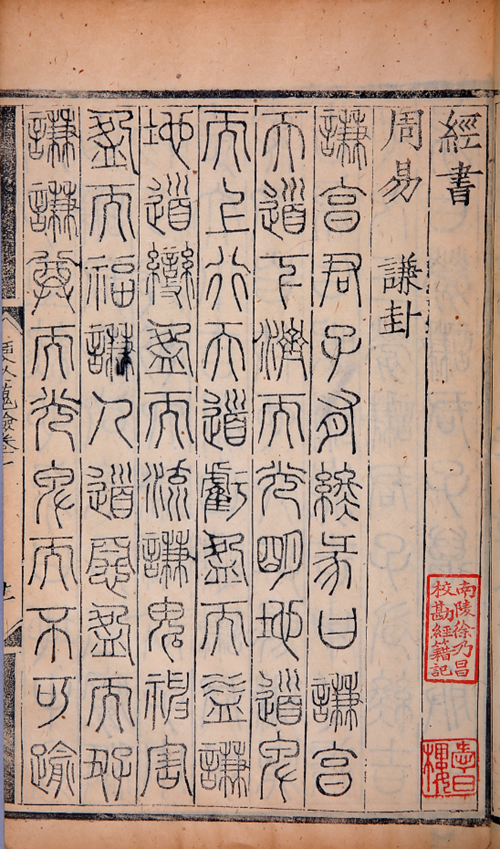 經書
周易 謙卦
謙亨君子有終彖曰謙亨
天道下濟而光明地道卑
而上行天道虧盈而益謙
地道變盈而流謙鬼神害
盈而福謙人道惡盈而好
謙謙尊而光卑而不可踰
南陵徐乃昌
校勘經籍記